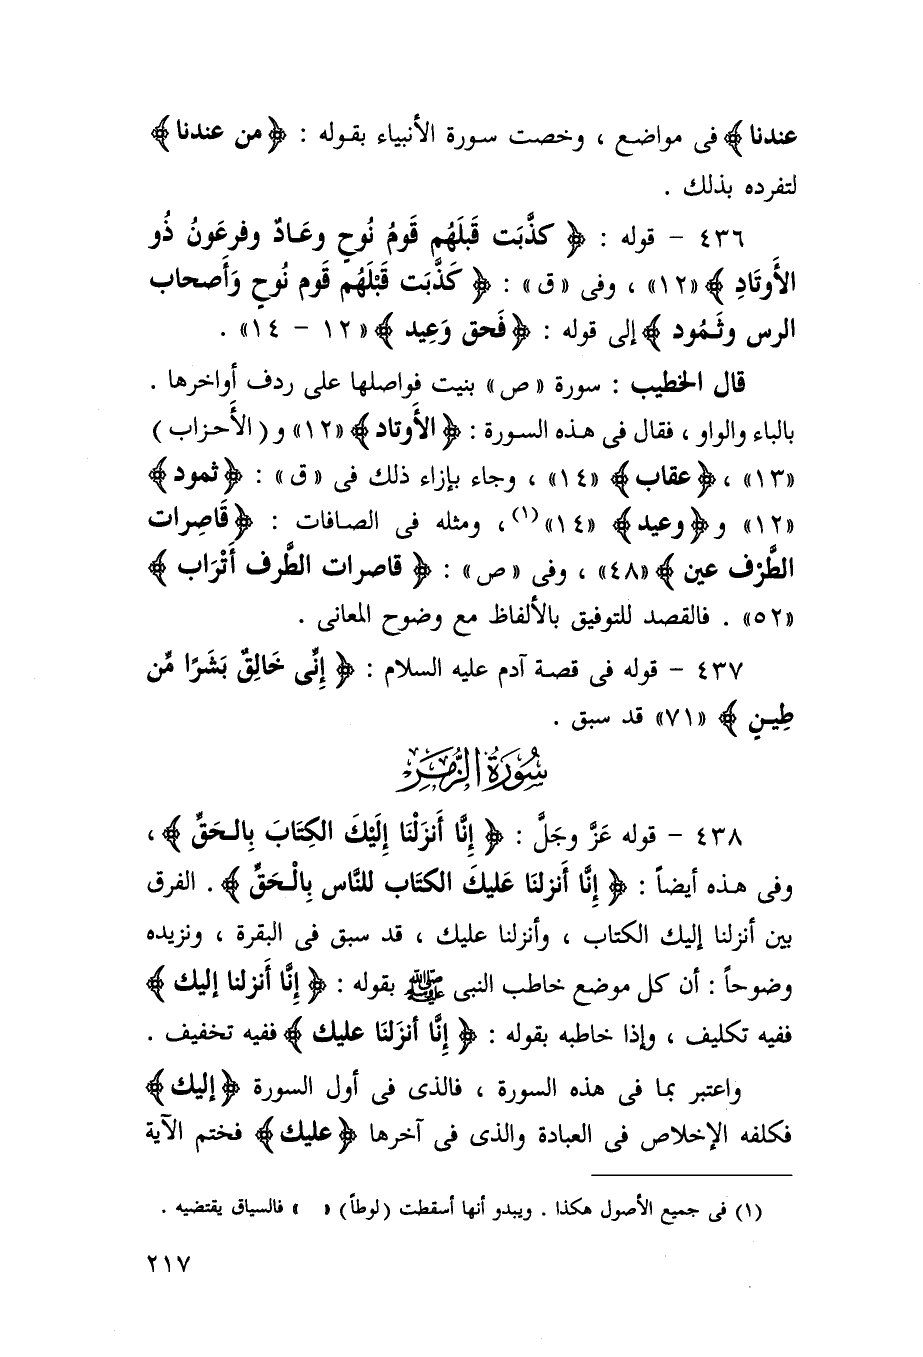 عندنا ﴾ فى مواضع ، وخصت سورة الأنبياء بقوله : ﴿ من عندنا ﴾
لتفرده بذلك .
٤٣٦ - قوله : ﴿ كذَّبَت قَبلَهُم قَومُ نُوحٍ وعَـادٌ وفرعَونُ ذُو
الأَوتَادِ ﴾ «١٢» ، وفى «ق» : ﴿ كَذَّبَت قَبْلَهُم قَوم نُوحٍ وَأَصحاب
الرس وثَـمُود ﴾ إلى قوله : ﴿ فَحق وَعِيد ﴾ «١٢ - ١٤» .
قال الخطيب : سورة «ص» بنيت فواصلها على ردف أواخرها .
بالباء والواو ، فقال فى هـذه السـورة : ﴿ الأَوتاد ﴾ «١٢» و ( الأَحـزاب )
«١٣» ، ﴿ عقاب ﴾ «١٤» ، وجاء بإزاء ذلك فى «ق» : ﴿ ثمود ﴾
«١٢» و ﴿ وعيد ﴾ «١٤»(١) ، ومثله فى الصـافات : ﴿ قَاصِرات
الطَّرْف عين ﴾ «٤٨» ، وفى «ص» : ﴿ قاصرات الطَّرف أَتْرَاب ﴾
«٥٢» . فالقصد للتوفيق بالألفاظ مع وضوح المعانى .
٤٣٧ - قوله فى قصـة آدم عليه السلام : ﴿ إِنِّى خَالِقٌ بَشَرًا مِّن
طِيـنٍ ﴾ «٧١» قد سبق .
سُورَةُ الزُّمَرِ
٤٣٨ - قوله عَزَّ وجَلَّ : ﴿ إِنَّا أَنزَلْنَا إِلَيْكَ الكِتَابَ بِالـحَقِّ ﴾ ،
وفى هـذه أيضاً : ﴿ إِنَّا أَنزلنَا عَليكَ الكتَاب للنَّاس بِالْـحَقِّ ﴾ . الفرق
بين أنزلنا إليك الكتاب ، وأنزلنا عليك ، قد سبق فى البقرة ، ونزيده
وضوحاً : أن كل موضع خاطب النبى ﷺ بقوله : ﴿ إِنَّا أَنزلنا إليك ﴾
ففيه تكليف ، وإذا خاطبه بقوله : ﴿ إِنَّا أنزَلنَا عليك ﴾ ففيه تخفيف .
واعتبر بما فى هذه السورة ، فالذى فى أول السورة ﴿ إليك ﴾
فكلفه الإخلاص فى العبادة والذى فى آخرها ﴿ عليك ﴾ فختم الآية
(١) فى جميع الأصول هكذا . ويبدو أنها أسقطت (لوطاً) « » فالسياق يقتضيه .
٢١٧